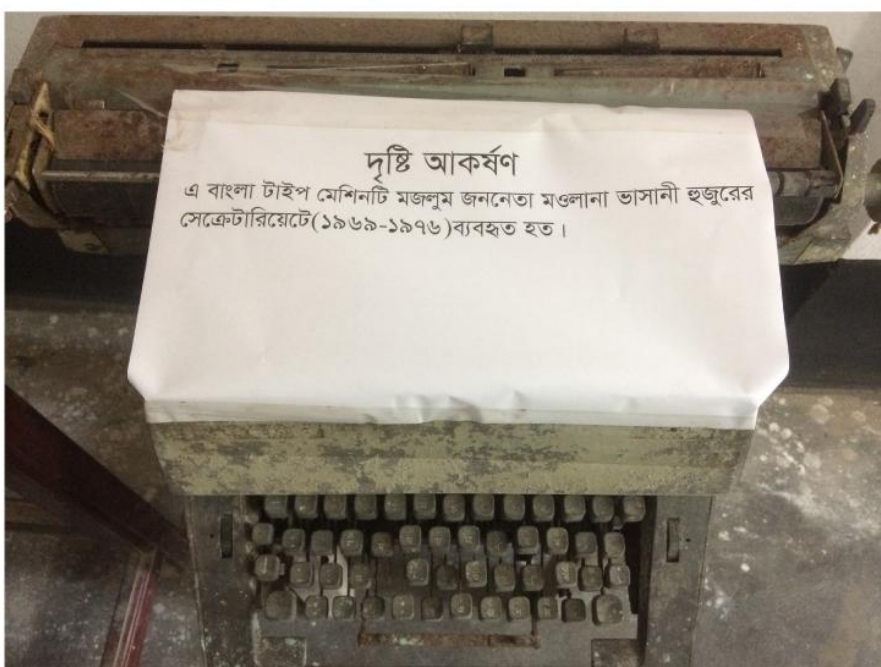 দৃষ্টি আকর্ষণ
এ বাংলা টাইপ মেশিনটি মজলুম জননেতা মওলানা ভাসানী হুজুরের
সেক্রেটারিয়েটে(১৯৬৯-১৯৭৬)ব্যবহৃত হত।